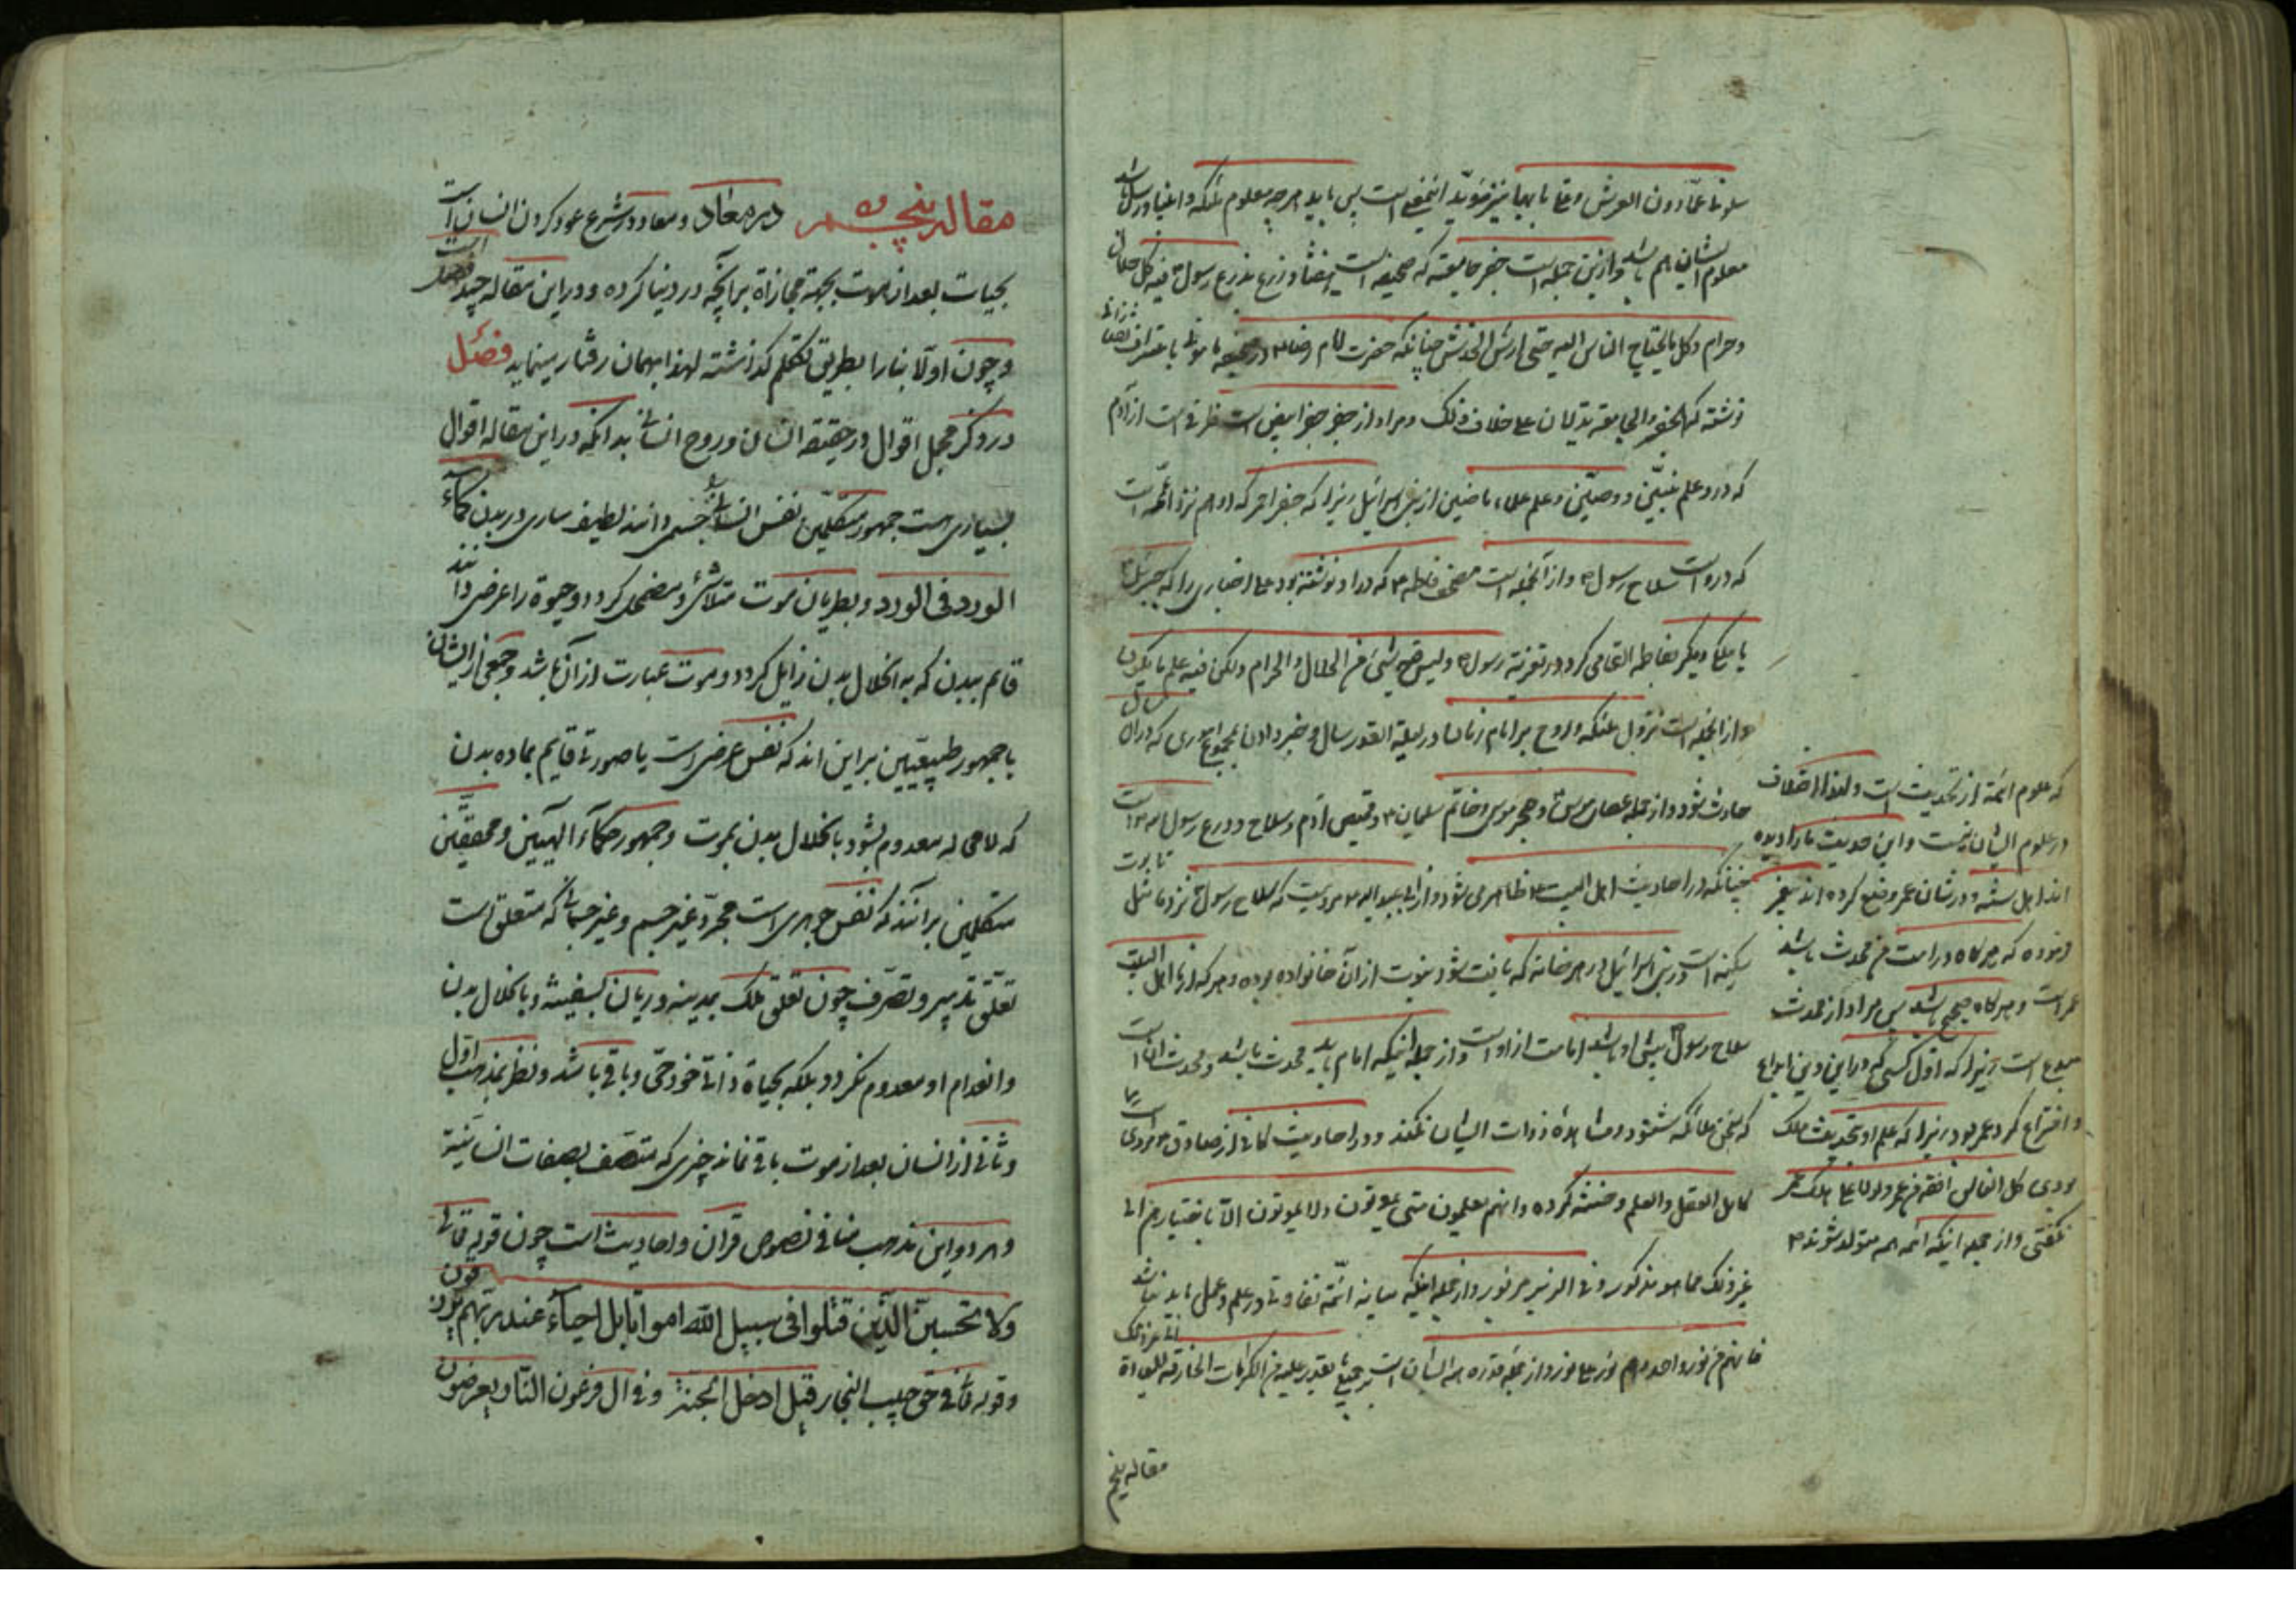 سلونی عمّا دون العرش و ما بابها نیز مؤید اینمعنی است پس باید هر چه معلوم ملئکه و انبیا و رسل باشد
معلوم ایشان هم باشد و ازین جمله است جفر جامعه که صحیفه ایست هفتاد ذرع بذرع رسول فیه کل حلال
و حرام و کل ما یحتاج الناس الیه حتی ارش الخدش چنانکه حضرت امام رضا ع در
نوشته که الجفر و الجامعة یدلان علی خلاف ذلک و مراد از جفر جفر ابیض است ظرفی است از آدم
که درو علم نبیّین و وصیّین و علم علماء ماضین از بنی اسرائیل زیرا که جفر احمر که او هم نزد ائمه است
که درو است سلاح رسول ص و از آنجمله است مصحف فاطمه ع که درو نوشته بود علی اخباری را که جبرئیل
یا ملک دیگر بفاطمه القا می کرد در تعزیة رسول ص و لیس فیه شیئ من الحلال و الحرام ولکن فیه علم ما یکون
و از انجمله است نزول ملئکه و روح بر امام زمان در لیلة القدر سال و خبر دادن بمجموع اموری که در آن سال
حادث شود و از جمله عصای موسی و حجر موسی و خاتم سلیمان ع و قمیص آدم و سلاح و درع رسول
چنانکه در احادیث اهل البیت ع ظاهر می شود و از ابی عبدالله ع مرویست که سلاح رسول نزد ما مثل تابوت
سکینه است در بنی اسرائیل در هر خانه که یافت شود نبوت از آن خانواده بوده و هر که از ما اهل البیت
سلاح رسول پیش او باشد امامت از او است و از جمله اینکه امام باید محدث باشد و محدث آن است
که سخن ملائکه شنود و مشاهده ذوات ایشان نکند و در احادیث کافی از صادق
کامل العقل و العلم و ختنه کرده و انهم یعلمون متی یموتون و لا یموتون الّا باختیار منهم الی
غیر ذلک مما هو مذکور فی الزبر مزبور و از جمله اینکه میانه ائمّه تفاوتی در علم و عمل باید نباشد
فانهم من نور واحد و هم نور علی نور و از جمله قدرت ایشان است بر جمیع ما یقدر علیه من الکرامات الخارقة للعادة
الی غیر ذلک
مقاله پنجم
که علوم ائمه از تحدیث است و لهذا اختلاف
در علوم ایشان نیست و این حدیث ما را دیده
اند اهل سنّه و در شان عمر وضع کرده اند پیغمبر
فرموده که هرگاه در امت من محدث باشد
عمر است و هرگاه صحیح باشد پس مراد از محدث
مبدع است زیرا که اول کسی که در این دین ابداع
و اختراع کرد عمر بود زیرا که علم او بتحدیث ملک
بودی کل الناس افقه من عمر و لولا علی لهلک عمر
نگفتی و از جمله اینکه ائمه همه متولد شوند
مقاله پنجم در معاد و معاد در شرع عود کردن انسان است
بحیات بعد از موت بجهة مجازاة بر آنچه در دنیا کرده و در این مقاله چند فصل است
و چون اولا بنا را بطریق تکلم گذاشته لهذا بهمان رفتار مینماید فصل
در ذکر مجمل اقوال در حقیقة انسان و روح انسانی بدانکه در این مقاله اقوال
بسیاری هست جمهور متکلمین نفس انسانی را جسمی دانند لطیف ساری در بدن کماء
الورد فی الورد و بطریان موت متلاشی و مضمحل گردد و حیوة را عرضی دانند
قائم ببدن که به انحلال بدن زایل گردد و موت عبارت از آن باشد و جمعی از ایشان
با جمهور طبیعیین بر این اند که نفس عرضی است یا صورتی قایم بماده بدن
که لامحاله معدوم شود بانحلال بدن بموت و جمهور حکماء الهیین و محققین
متکلمین برآنند که نفس جوهری است مجرّد غیر جسم و غیر جسمانی که متعلق است
تعلق تدبیر و تصرّف چون تعلق ملک بمدینه و ربان بسفینه و بانحلال بدن
و انعدام او معدوم نگردد بلکه بحیاة ذاتی خود حیّ و باقی باشد و نظر بمذهب اول
و ثانی از انسان بعد از موت باقی نماند چیزی که متصف بصفات انسانیّة
و هر دو این مذهب منافی نصوص قرآن و احادیث است چون قوله تعالی
ولا تحسبنّ الّذین قتلوا فی سبیل اللّه امواتا بل احیاء عند ربّهم یرزقون
و قوله تعالی فی حق حبیب النجار قیل ادخل الجنة و فی ال فرعون النّار یعرضون